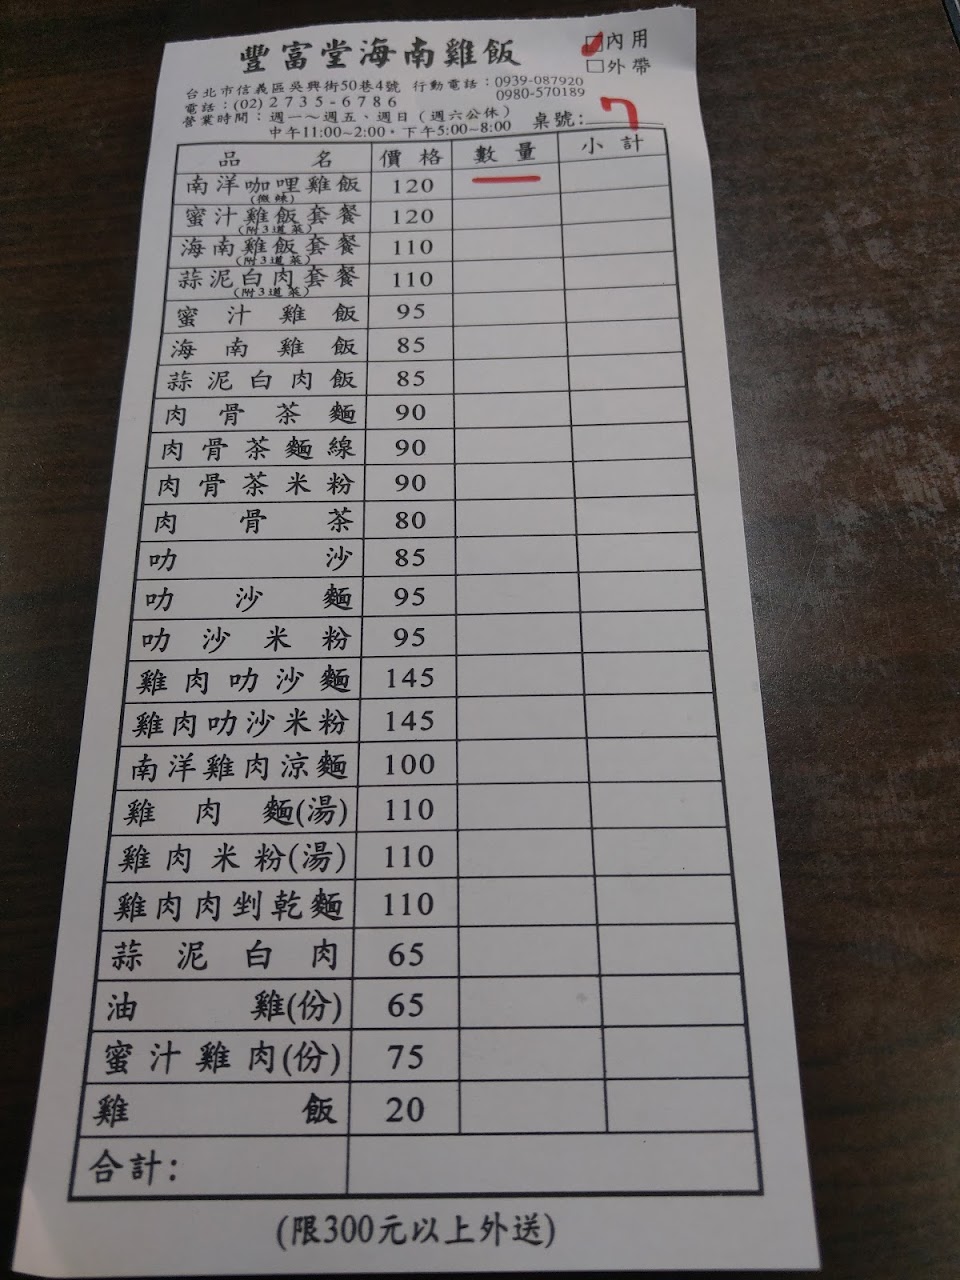 豐富堂海南雞飯
內用
外帶
台北市信義區吳興街50巷4號 行動電話：0939-087920
電話：(02) 2735-6786 0980-570189
營業時間：週一～週五、週日（週六公休）
中午11:00~2:00，下午5:00~8:00 桌號：7
品名 價格 數量 小計
南洋咖哩雞飯 120
(微辣)
蜜汁雞飯套餐 120
(附3道菜)
海南雞飯套餐 110
(附3道菜)
蒜泥白肉套餐 110
(附3道菜)
蜜汁雞飯 95
海南雞飯 85
蒜泥白肉飯 85
肉骨茶麵 90
肉骨茶麵線 90
肉骨茶米粉 90
肉骨茶 80
叻沙 85
叻沙麵 95
叻沙米粉 95
雞肉叻沙麵 145
雞肉叻沙米粉 145
南洋雞肉涼麵 100
雞肉麵(湯) 110
雞肉米粉(湯) 110
雞肉肉剉乾麵 110
蒜泥白肉 65
油雞(份) 65
蜜汁雞肉(份) 75
雞飯 20
合計：
(限300元以上外送)